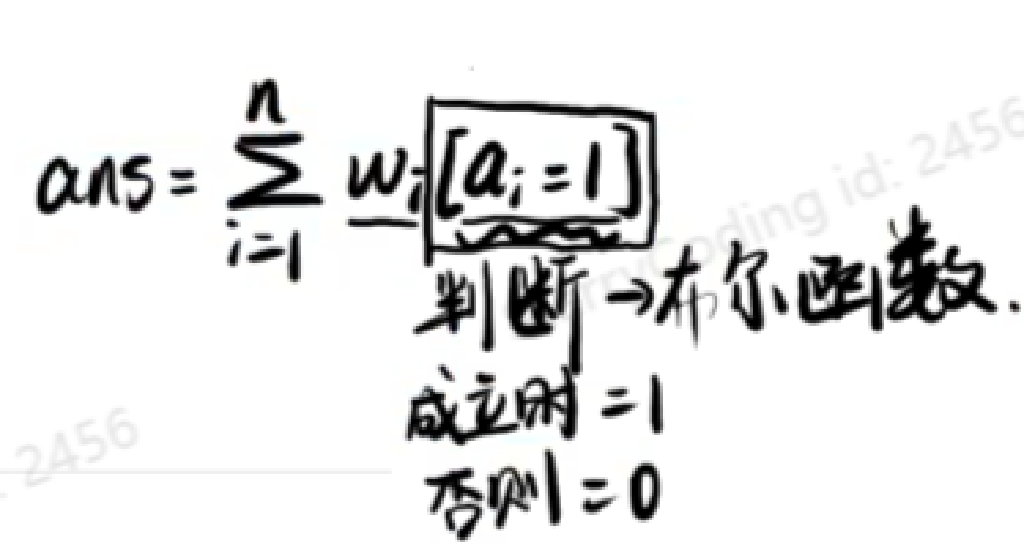 ans = \sum_{i=1}^{n} w_i [a_i = 1]
判断→布尔函数.
成立时 = 1
否则 = 0
coding id: 2456
: 2456